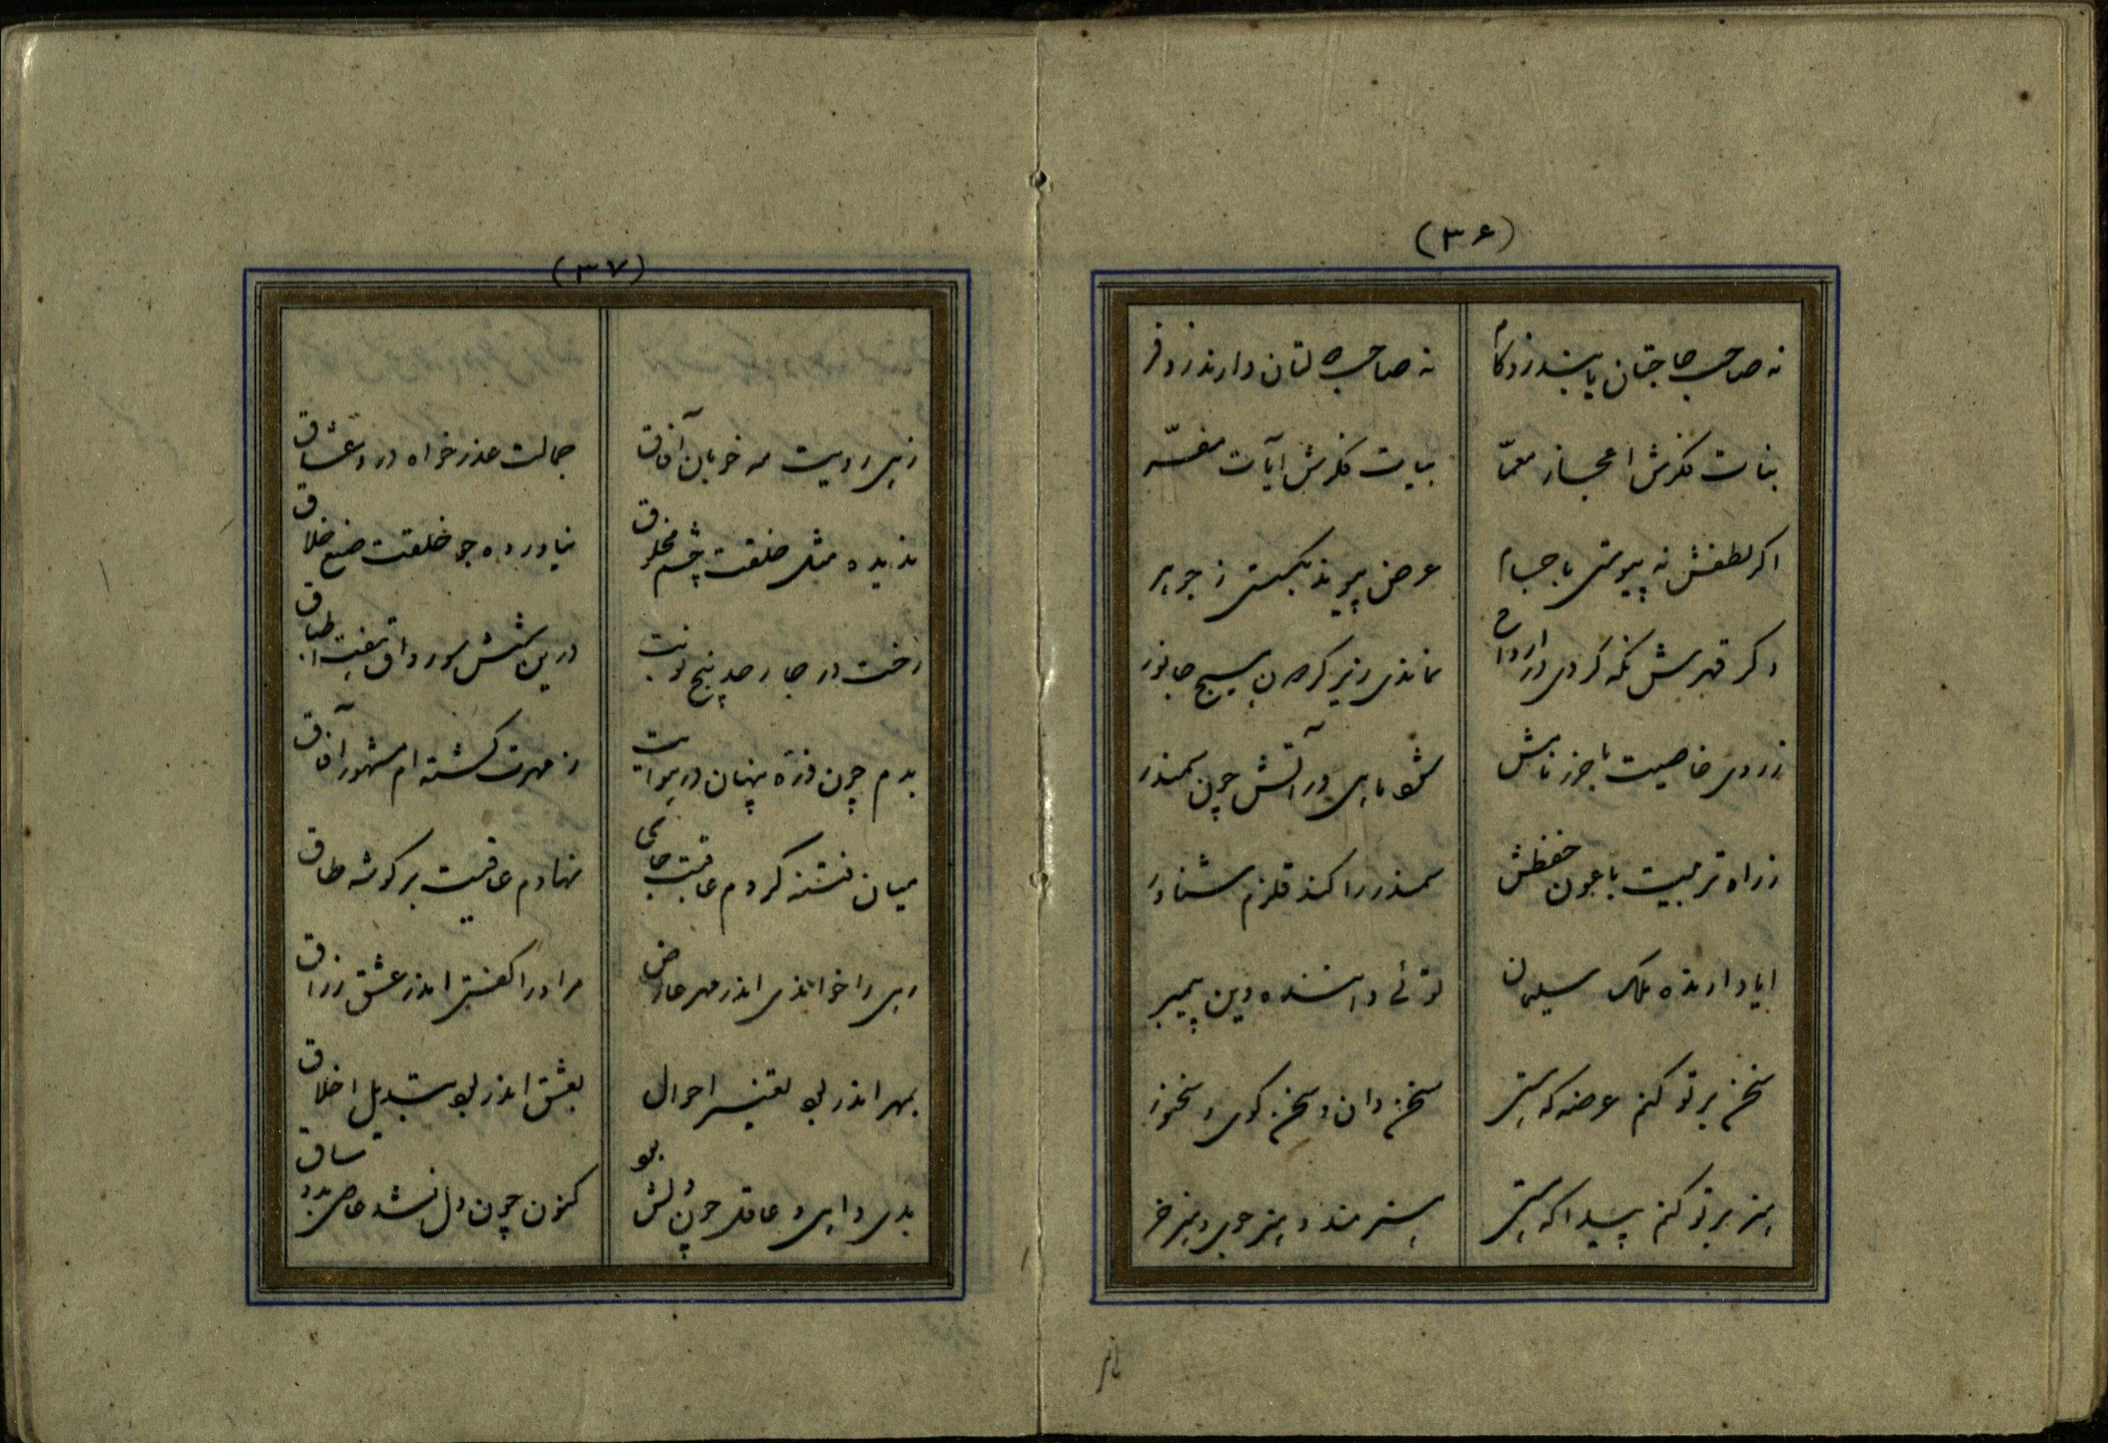 (۳۶)
نه صاحب حاجتان یابند زو کام نه صاحب دولتان دارند زو فر
بنات فکرش اعجاز معمّا بیات فکرش آیات مفسّر
اکر لطفش نه پیوستی باجسام عرض پیوند بکسستی ز جوهر
وکر قهرش نکه کردی در ارواح نماندی زیر کردون هیچ جانور
ز روی خاصیت با حرز نامش شو ماهی در آتش چون سمندر
ز راه تربیت با عون حفظش سمندر را کند قلزم شناور
ایا دارنده ملک سلیمان توئی داننده دین پیمبر
سخن بر تو کنم عرضه که هستی سخن دان و سخن کوی و سخنور
هنر بر تو کنم پیدا که هستی هنرمند و هنر جوی و هنر خر
(۳۷)
زهی رویت مه خوبان آفاق جمالت عذر خواه درد عشاق
ندیده مثل خلقت چشم مخلوق نیاورده چو خلقت صنع خلاق
رخت در چار حد پنج نوبت درین شش سو رواق هفت اطباق
بدم چون ذرّه پنهان در هوایت ز مهرت کشته ام مشهور آفاق
میان فتنه کردم عاقبت جای نهادم عافیت بر کوشه طاق
رهی را خواندی اندر مهر عارض مرا در اکفتی اندر عشق رزاق
بمهر اندر بو تغییر احوال بعشق اندر بو تبدیل اخلاق
بدی داهی و عاقل چون دلش بو کنون چون دل بشد عاصی بدو ساق